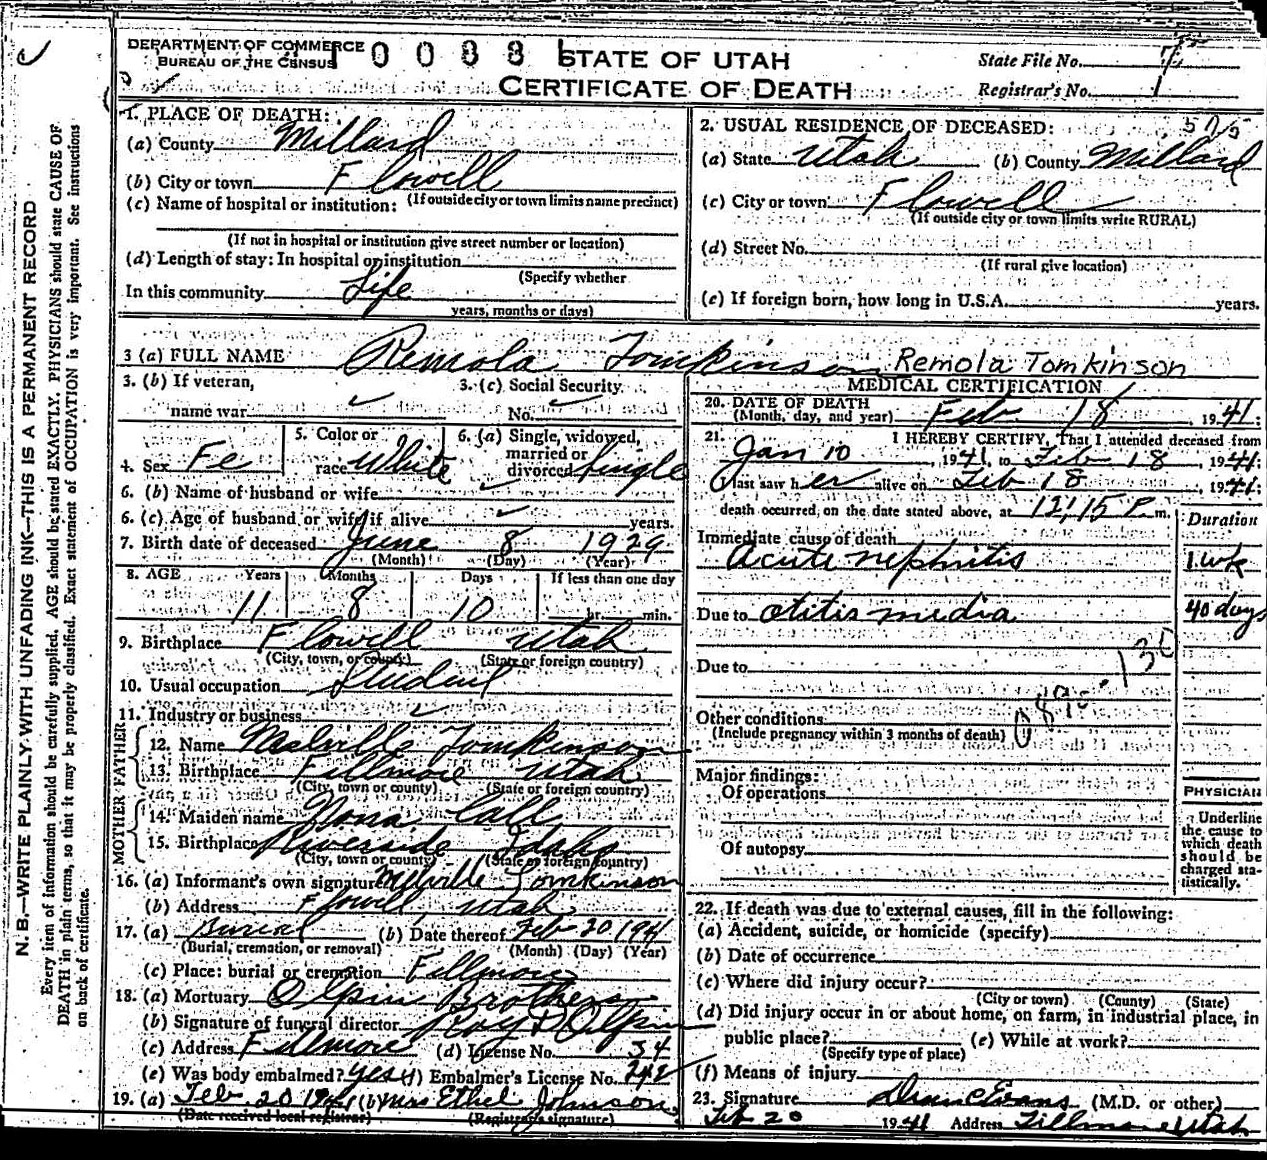 DEPARTMENT OF COMMERCE
BUREAU OF THE CENSUS
STATE OF UTAH
CERTIFICATE OF DEATH
State File No.
Registrar's No. 1
N. B.—WRITE PLAINLY—WITH UNFADING INK—THIS IS A PERMANENT RECORD
Every item of information should be carefully supplied. AGE should be stated EXACTLY. PHYSICIANS should state CAUSE OF
DEATH in plain terms, so that it may be properly classified. Exact statement of OCCUPATION is very important. See instructions
on back of certificate.
1. PLACE OF DEATH:
(a) County Millard
(b) City or town Flowell
(If outside city or town limits name precinct)
(c) Name of hospital or institution:
(If not in hospital or institution give street number or location)
(d) Length of stay: In hospital or institution
(Specify whether
In this community Life
years, months or days)
2. USUAL RESIDENCE OF DECEASED:
(a) State Utah (b) County Millard
(c) City or town Flowell
(If outside city or town limits write RURAL)
(d) Street No.
(If rural give location)
(e) If foreign born, how long in U.S.A. years.
3 (a) FULL NAME Remola Tomkinson Remola Tomkinson
3. (b) If veteran, name war
3. (c) Social Security No.
4. Sex Fe
5. Color or race White
6. (a) Single, widowed, married or divorced Single
6. (b) Name of husband or wife
6. (c) Age of husband or wife if alive years.
7. Birth date of deceased June 8 1929
(Month) (Day) (Year)
8. AGE Years Months Days If less than one day
11 8 10 hr. min.
9. Birthplace Flowell Utah
(City, town, or county) (State or foreign country)
10. Usual occupation Student
11. Industry or business
FATHER
12. Name Melville Tomkinson
13. Birthplace Fillmore Utah
(City, town or county) (State or foreign country)
MOTHER
14. Maiden name Nona Call
15. Birthplace Riverside Idaho
(City, town or county) (State or foreign country)
16. (a) Informant's own signature Melville Tomkinson
(b) Address Flowell, Utah
17. (a) Burial (b) Date thereof Feb 20 1941
(Burial, cremation, or removal) (Month) (Day) (Year)
(c) Place: burial or cremation Fillmore
18. (a) Mortuary Olpin Brothers
(b) Signature of funeral director Roy D Olpin
(c) Address Fillmore (d) License No. 34
(e) Was body embalmed? yes (f) Embalmer's License No. 242
19. (a) Feb 20 1941 (b) Mrs Ethel Johnson
(Date received local registrar) (Registrar's signature)
MEDICAL CERTIFICATION
20. DATE OF DEATH
(Month, day, and year) Feb 18 1941:
21. I HEREBY CERTIFY, That I attended deceased from
Jan 10, 1941, to Feb 18, 1941:
I last saw her alive on Feb 18, 1941:
death occurred, on the date stated above, at 12:15 P. m.
Duration
Immediate cause of death
Acute nephritis 1 wk
Due to otitis media 40 days
Due to
Other conditions
(Include pregnancy within 3 months of death)
Major findings:
Of operations
Of autopsy
PHYSICIAN
Underline
the cause to
which death
should be
charged sta-
tistically.
22. If death was due to external causes, fill in the following:
(a) Accident, suicide, or homicide (specify)
(b) Date of occurrence
(c) Where did injury occur?
(City or town) (County) (State)
(d) Did injury occur in or about home, on farm, in industrial place, in
public place? (e) While at work?
(Specify type of place)
(f) Means of injury
23. Signature Dean C Evans (M.D. or other)
Feb 20 1941 Address Fillmore Utah